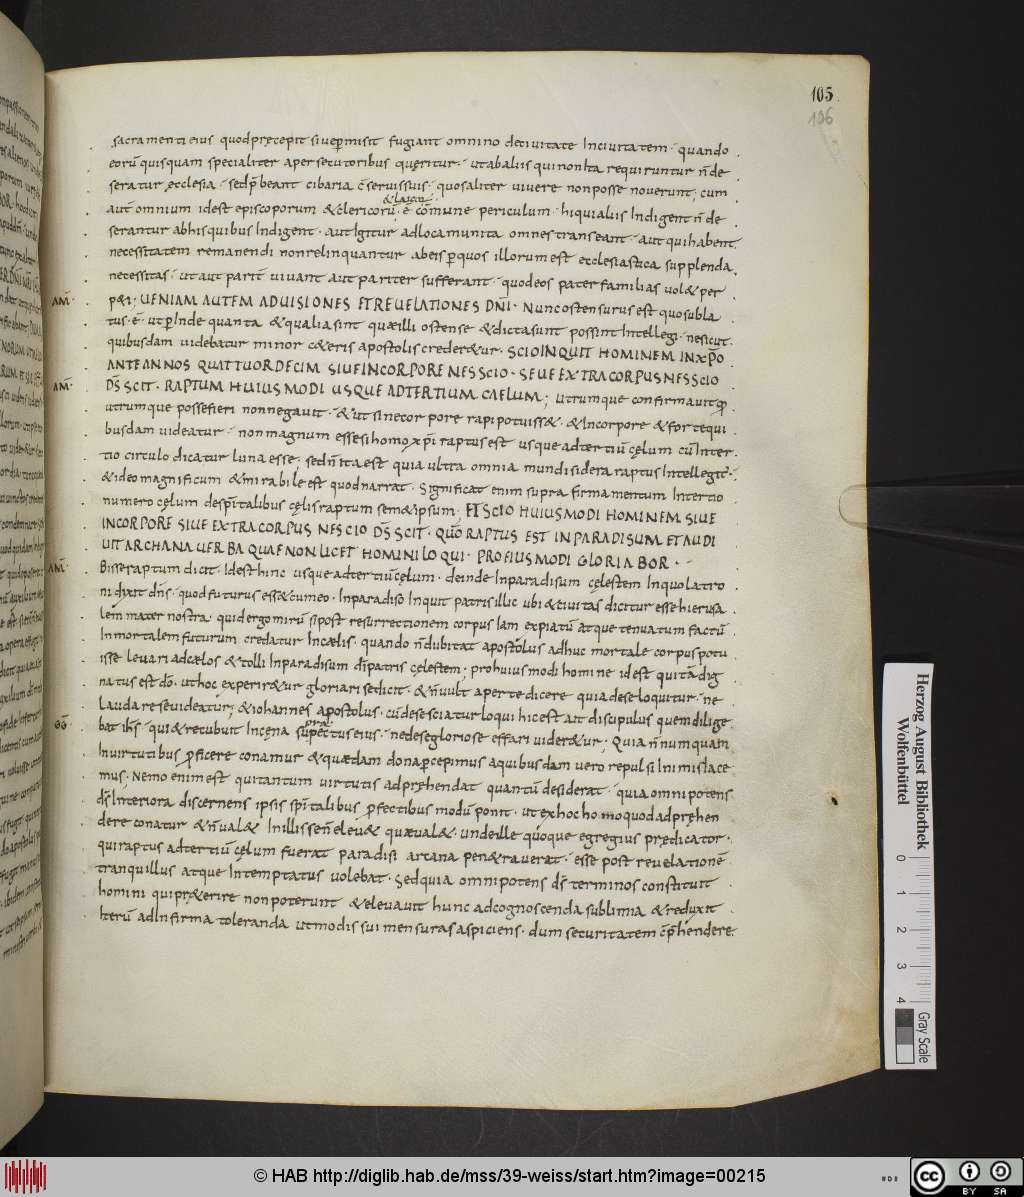 105
106
sacramenti eius quod pręcepit siue p̄misit fugiant omnino deciuitate Inciuitatem · quando
eorū quisquam specialiter apersecutoribus quęritur · utabaliis quinonita requiruntur n̄ de
seratur ęcclesia · sedp̄beant cibaria c̄seruis suis · quosaliter uivere nonposse noverunt; cum
& laicoꝝ
autē omnium idest episcoporum & clericorū · ē cōmune periculum · hiquialiis Indigent n̄ de
serantur abhis quibus Indigent · aut Igitur adlocamunita omnes transeant · aut quihabent
necessitatem remanendi nonrelinquantur abeis p quos illorum est ecclesiastica supplenda
necessitas · ut aut paritē vivant aut pariter sufferant · quodeos paterfamilias uol& per
AM̄
p&i; UENIAM AUTEM ADUISIONES ET REUELATIONES DN̄I · Nunc ostensurus est quosubla
tus · ē · ut p̄Inde quanta & qualia sint quæilli ostense & dicta sunt possint Intellegi · nesicut
quibusdam uidebatur minor c&eris apostolis creder&ur · SCIO INQUIT HOMINEM IN XP̄O
ANTE ANNOS QUATTUORDECIM SIUE IN CORPORE NESSCIO · SEUE EXTRA CORPUS NESSCIO
AM̄
DS̄ SCIT · RAPTUM HUIUSMODI USQUE AD TERTIUM CAELUM; utrumque confirmauit
utrumque possefieri nonnegauit · & ut sinecorpore rapi potuiss& · & Incorpore & forte qui
busdam uideatur · non magnum esse si homo xp̄i raptus est usque ad tertiū cęlum cū Inter
tio circulo dicatur luna esse; sedn̄ ita est quia ultra omnia mundi sidera raptus Intellegit̄
& ideo magnificum & mirabile est quod narrat · Significat enim supra firmamentum Intertio
numero cęlum despi̅talibus cęlis raptum sem&ipsum · ET SCIO HUIUSMODI HOMINEM SIUE
IN CORPORE SIUE EXTRA CORPUS NESCIO DS̄ SCIT · QUŌ RAPTUS EST IN PARADISUM ET AUDI
UIT ARCHANA UERBA QUAE NON LICET HOMINI LOQUI · PRO EIUSMODI GLORIABOR ·
AM̄
Bisse raptum dicit · Idest hinc usque ad tertiū cęlum · deinde Inparadisum cęlestem Inquo latro
ni dixit dn̄s · quod futurus ess& cumeo · Inparadiso Inquit patris illic ubi & ciuitas dicitur esse hierusa
lem mater nostra · quid ergo mirū si post resurrectionem corpus Iam expiatū atque tenuatum factū
Inmortalem futurum credatur Incælis · quando n̄ dubitat apostolus adhuc mortale corpus potu
isse leuari ad cælos & tolli Inparadisum dī patris cęlestem; pro huiusmodi homine id est qui tā dig
natus est dō · ut hoc experir&ur gloriari se dicit · & n̄ uult aperte dicere quia dese loquitur · ne
Lauda re se uideatur; & iohannes apostolus · cū dese sciatur loqui hic est ait discipulus quem dilige
GḠ
bat ih̄s · qui & recubuit Incena supectus eius · ne dese gloriose effari uider&ur; Quia n̄ numquam
pra
Inuirtutibus p̄ficere conamur & quædam dona p̄cepimus a quibusdam uero repulsi Inimis Iace
mus · Nemo enim est qui tantum uirtutis adpręhendat quantū desiderat · quia omnipotens
ds̄ Interiora discernens ipsis spi̅talibus p̄fectibus modū ponit · ut ex hoc homo quod adpręhen
dere conatur & n̄ ual& Inillis sen̄ eleu& quæ ual& · unde ille quoque egregius prędicator ·
qui raptus ad tertiū cęlum fuerat paradisi arcana pen&rauerat · esse post reuelationē
tranquillus atque Intemptatus uolebat · Sed quia omnipotens ds̄ terminos constituit
homini qui pr&erire non poterunt & eleuauit hunc ad cognoscenda sublimia & reduxit
Iterū ad Infirma toleranda ut modis sui mensuras aspiciens · dum securitatem c̄p̄hendere
Herzog August Bibliothek
Wolfenbüttel
0 1 2 3 4
Gray Scale
© HAB http://diglib.hab.de/mss/39-weiss/start.htm?image=00215
HAB
cc BY SA